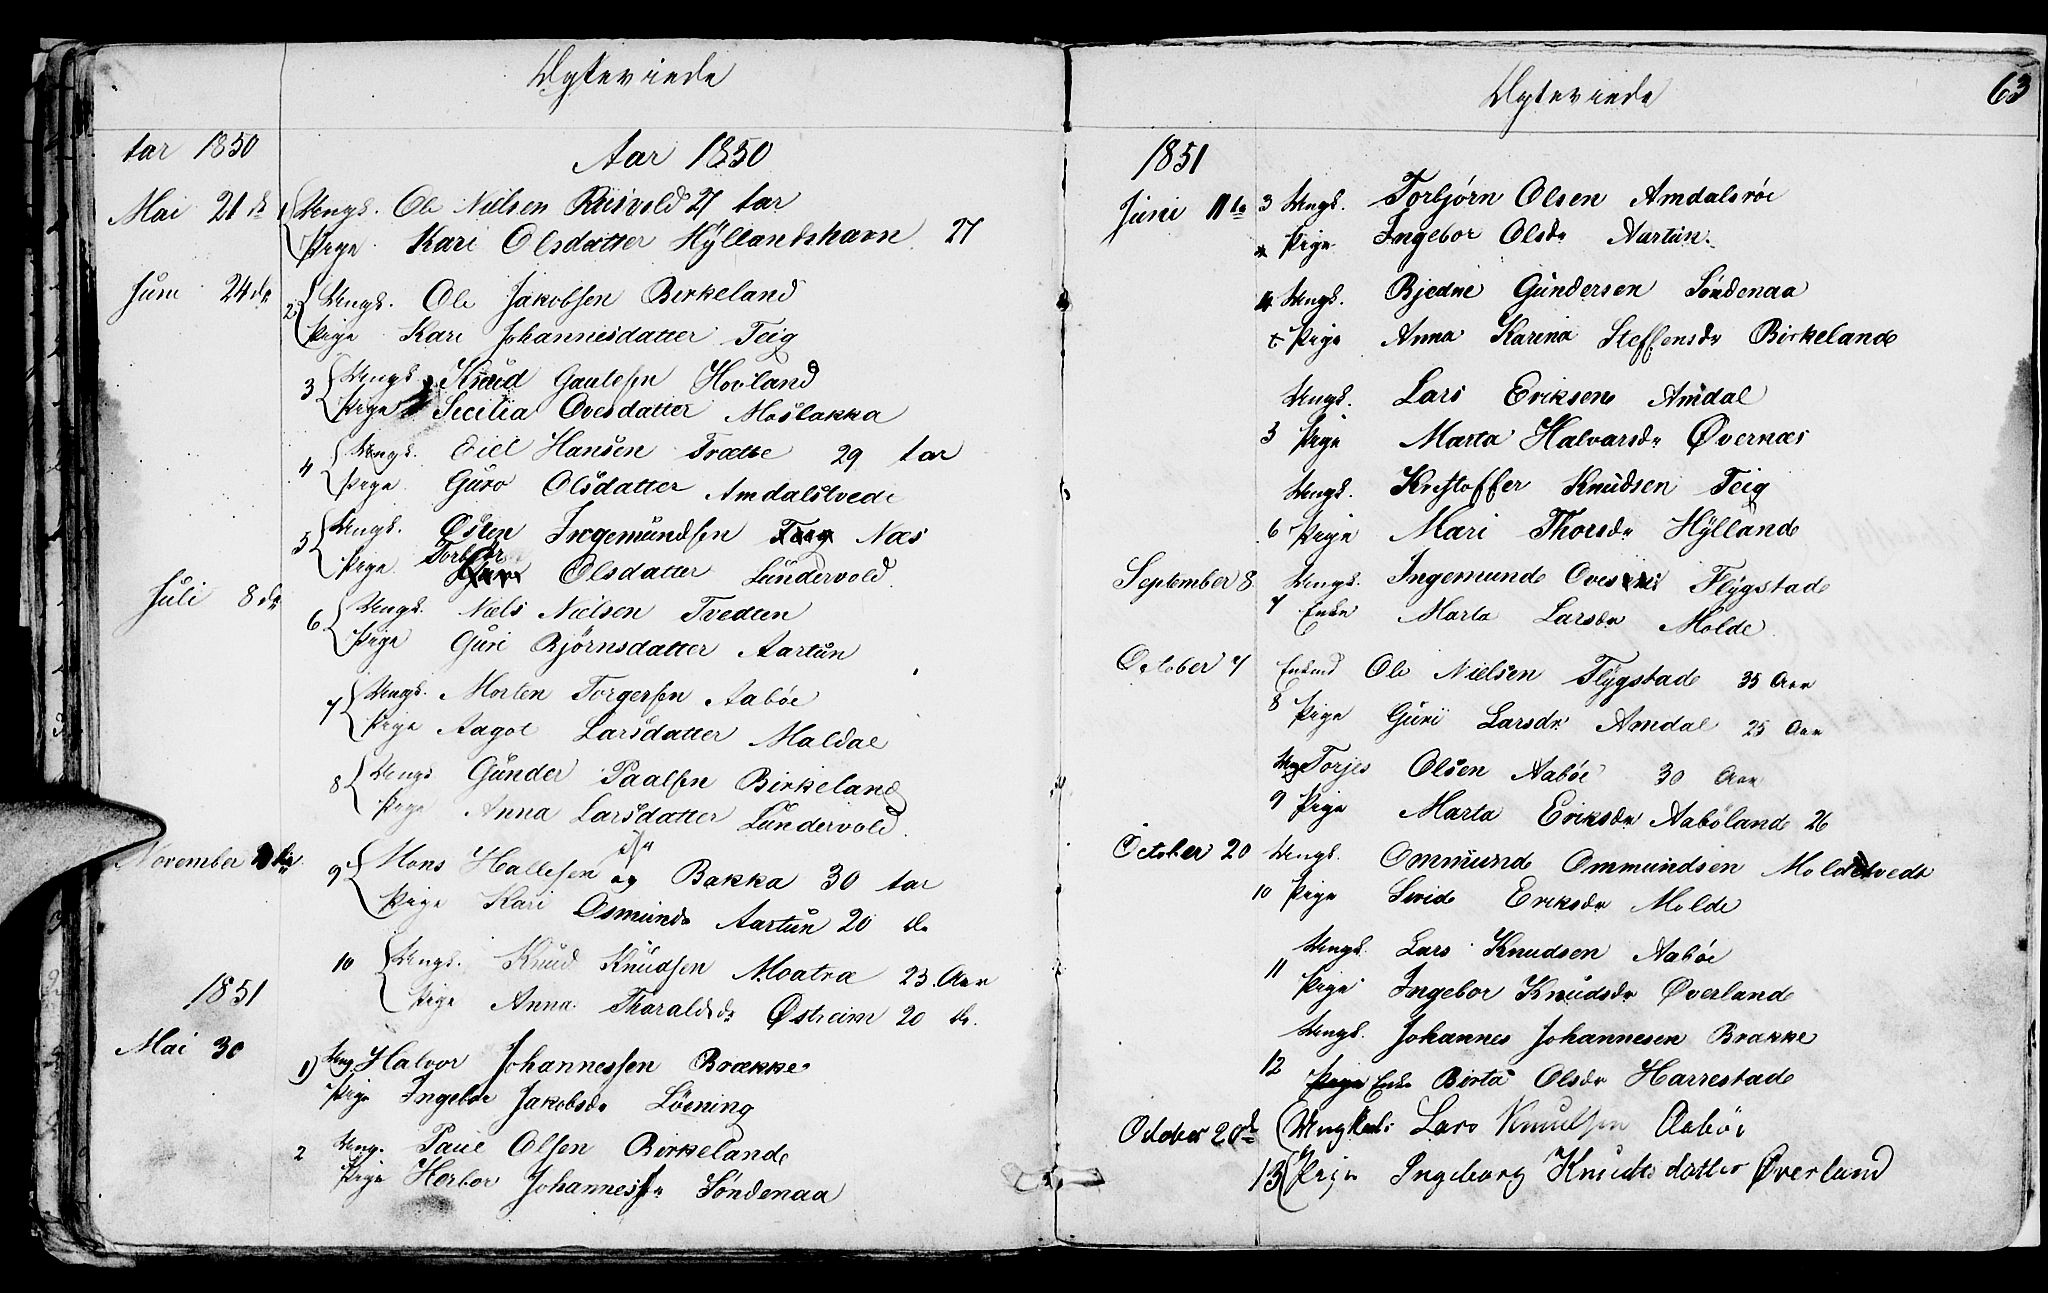 Ægteviede
Aar 1850
Aar 1850
Mai 21de
1 Ungk. Ole Nielsen Riisvold 27 Aar
Pige Kari Olsdatter Hÿllandshavn 27
Juni 24de
2 Ungk. Ole Jakobsen Birkeland
Pige Kari Johannesdatter Teig
3 Ungk. Knud Gautesen Hovland
Pige Secilia Ovesdatter Moslakka
4 Ungk. Eiel Hansen Trætte 29 Aar
Pige Guro Olsdatter Amdalstvede
5 Ungk. Østen Ingemundsen Teig Næs
Pige Torbjør Olsdatter Lundervold
Juli 8de
6 Ungk. Niels Nielsen Tvedten
Pige Guri Bjørnsdatter Aartun
7 Ungk. Morten Torgersen Aabøe
Pige Aagot Larsdatter Maldal
8 Ungk. Gunder Paalsen Birkeland
Pige Anna Larsdatter Lundervold
November
9 Mons Hallesen og Bakka 30 Aar
Pige Kari Osmunds Aartun 20 do
10 Ungk. Knud Knudsen Moatra 23 Aar
Pige Anna Tharaldsdr Østreim 20 do.
1851
Mai 30
1) Ung Halvor Johannessen Brække
Pige Ingebor Jakobsdr Løining
2 Ung. Paul Olsen Birkelande
Pige Herbor Johannesdr Søndenaa
Ægteviede
63
1851
Juni 11te
3 Ungk. Torbjørn Olsen Amdalsrøe
Pige Ingebor Olsdr Aartun
4 Ungk. Bjedne Gundersen Søndenaa
Pige Anna Karina Steffensdr Birkelande
Ungk. Lars Eriksen Amdal
5 Pige Marta Halvarsdr Øvernæs
Ungk. Kristoffer Knudsen Teig
6 Pige Mari Thorsdr Hÿllande
September 8 Ungk. Ingemunde Ovesen Flÿgstade
7 Enke Marta Larsdr Molde
October 7 Enkmd Ole Nielsen Flÿgstade 35 Aar
8 Pige Guri Larsdr Amdal 25 Aar
Ung Torjes Olsen Aabøe 30 Aar
9 Pige Marta Eriksdr Aabøland 26
October 20 Ungk. Ommund Ommundsen Moldetvedt
10 Pige Sirid Eriksdr Molde
Ungk. Lars Knudsen Aabøe
11 Pige Ingebor Knudsdr Øverlande
Ungk. Johannes Johannesen Brakke
12 Pige Enke Birta Olsdr Harrestade
October 20de Ungkarl: Lars Knudsen Aabøe
13 Pige Ingeborg Knudsdatter Øverland